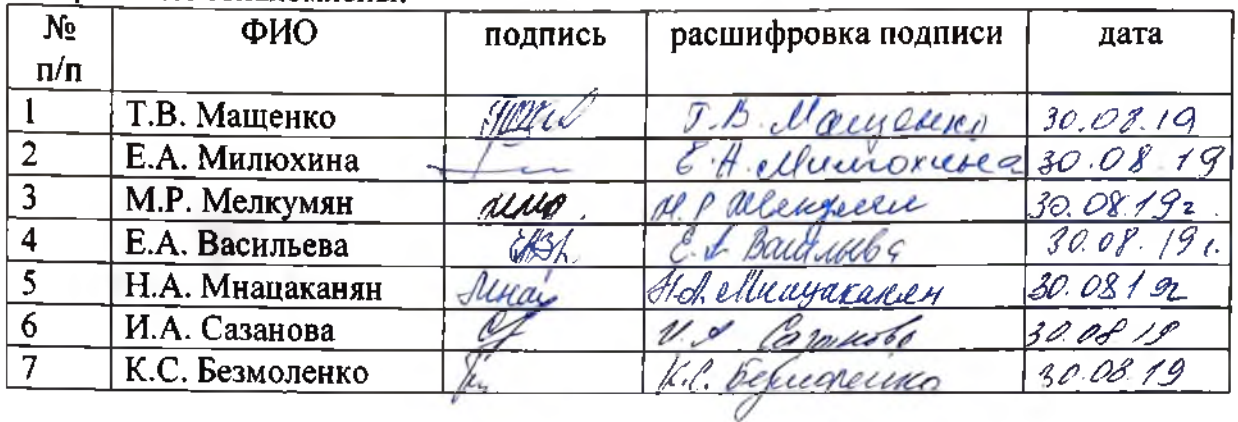 № ФИО подпись расшифровка подписи дата
п/п
1 Т.В. Мащенко Т.В. Мащенко 30.08.19
2 Е.А. Милюхина Е.А. Милюхина 30.08 19
3 М.Р. Мелкумян М.Р Мелкумян 30.08.19г.
4 Е.А. Васильева Е.А. Васильева 30.08.19г.
5 Н.А. Мнацаканян Н.А. Мнацаканян 30.0819г
6 И.А. Сазанова И.А Сазанова 30.08 19
7 К.С. Безмоленко К.С. Безмоленко 30.08.19